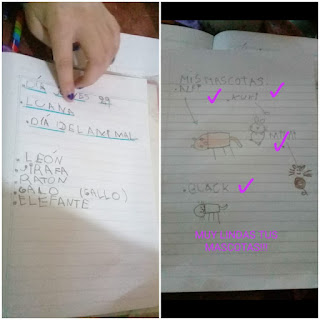 DÍA
LUANA
DÍA DEL ANIMAL
LEÓN
JIRAFA
RATÓN
GALO (GALLO)
ELEFANTE
MIS MASCOTAS
BLACK
TUS
MASCOTAS!!